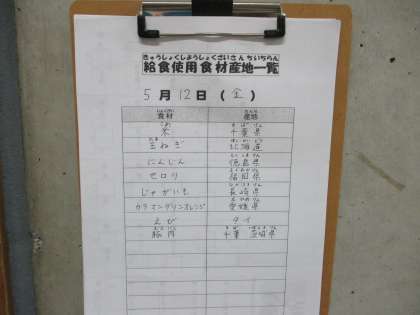 きゅうしょくしようしょくざいさんちいちらん
給食使用食材産地一覧
5月12日(金)
食材 産地
米 千葉県
玉ねぎ 北海道
にんじん 徳島県
セロリ 福岡県
じゃがいも 長崎県
カラマンダリンオレンジ 愛媛県
えび タイ
豚肉 千葉 茨城県